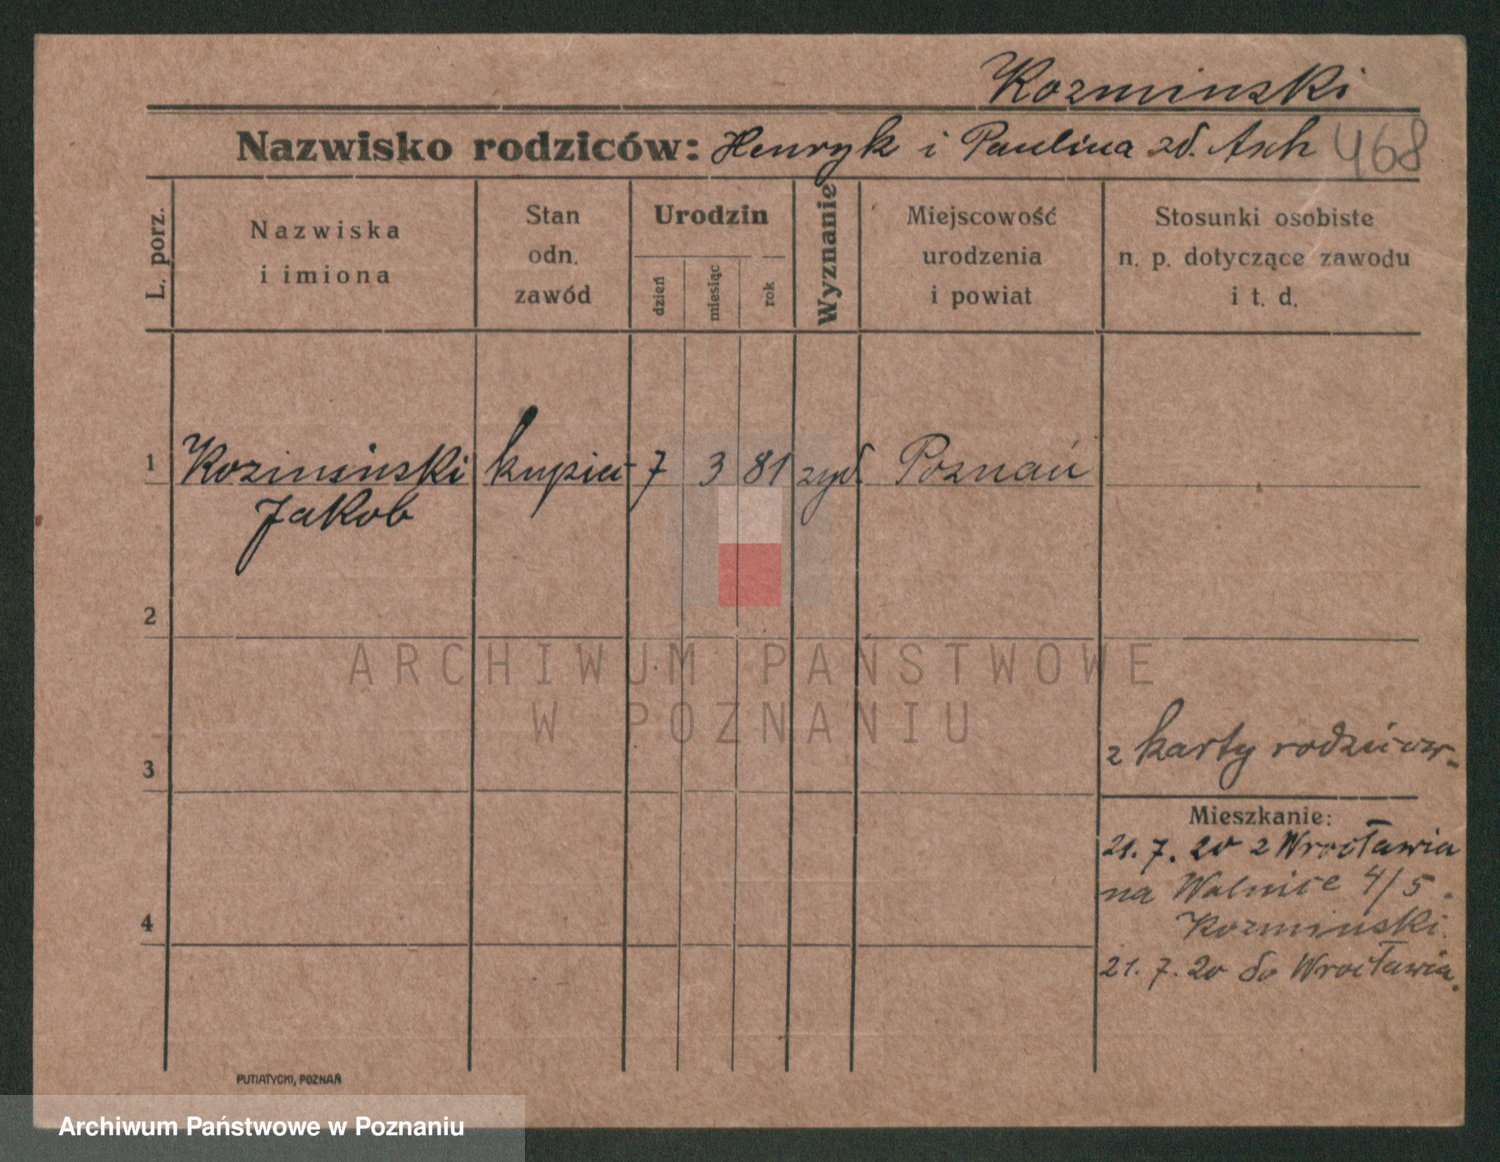 Kozminski
Nazwisko rodziców: Henryk i Paulina zd. Asch 468
L. porz.
Nazwiska
i imiona
Stan
odn.
zawód
Urodzin
dzień
miesiąc
rok
Wyznanie
Miejscowość
urodzenia
i powiat
Stosunki osobiste
n. p. dotyczące zawodu
i t. d.
1 Kozminski kupiec 7 3 81 żyd. Poznań
Jakob
2
ARCHIWUM PAŃSTWOWE
W POZNANIU
3
z karty rodziców-
Mieszkanie:
21. 7. 20 z Wrocławia
na Walnice 4/5.
Kozminski.
4
21. 7. 20 do Wrocławia.
PUTIATYCKI, POZNAŃ
Archiwum Państwowe w Poznaniu